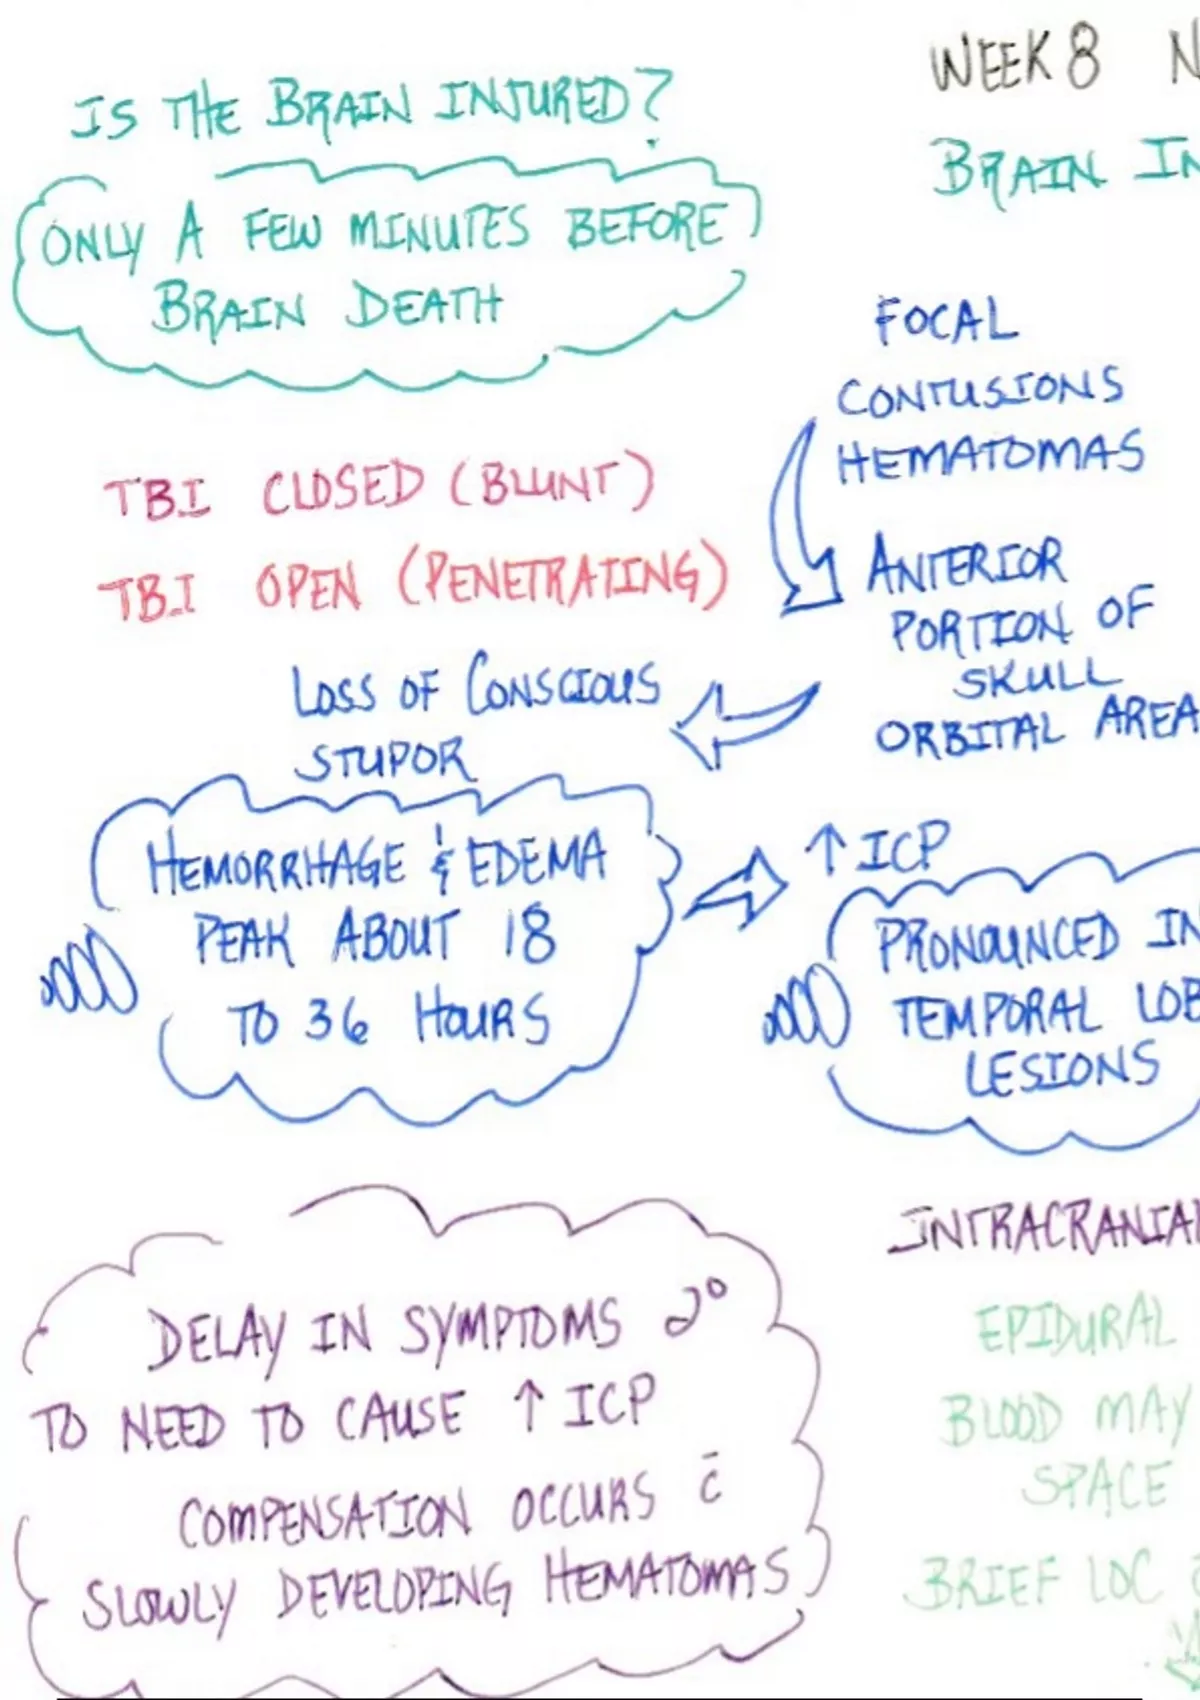 WEEK 8
IS THE BRAIN INJURED?
BRAIN
ONLY A FEW MINUTES BEFORE
BRAIN DEATH
FOCAL
CONTUSIONS
HEMATOMAS
TBI CLOSED (BLUNT)
TBI OPEN (PENETRATING)
ANTERIOR
PORTION OF
SKULL
ORBITAL AREA
LOSS OF CONSCIOUS
STUPOR
HEMORRHAGE & EDEMA
PEAK ABOUT 18
TO 36 HOURS
↑ ICP
PRONOUNCED IN
TEMPORAL
LESIONS
DELAY IN SYMPTOMS 2°
TO NEED TO CAUSE ↑ ICP
COMPENSATION OCCURS c̄
SLOWLY DEVELOPING HEMATOMAS
INTRACRANIAL
EPIDURAL
BLOOD MAY
SPACE
BRIEF LOC